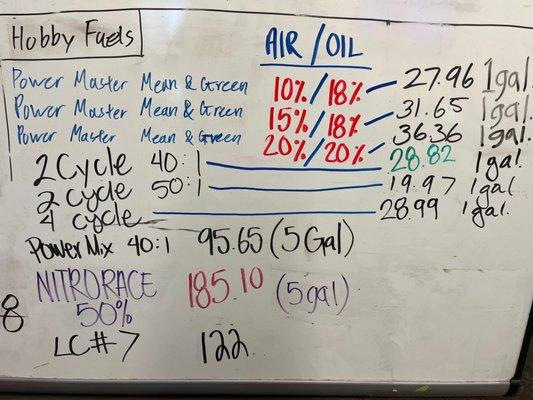 Hobby Fuels
AIR / OIL
Power Master Mean & Green 10% / 18% 27.96 1gal.
Power Master Mean & Green 15% / 18% 31.65 1gal.
Power Master Mean & Green 20% / 20% 36.36 1gal.
2 Cycle 40:1 28.82 1gal.
2 cycle 50:1 19.97 1gal.
4 cycle 28.99 1gal.
Power Mix 40:1 95.65 (5 Gal)
NITRORACE 185.10 (5gal)
50%
8
LC#7 122